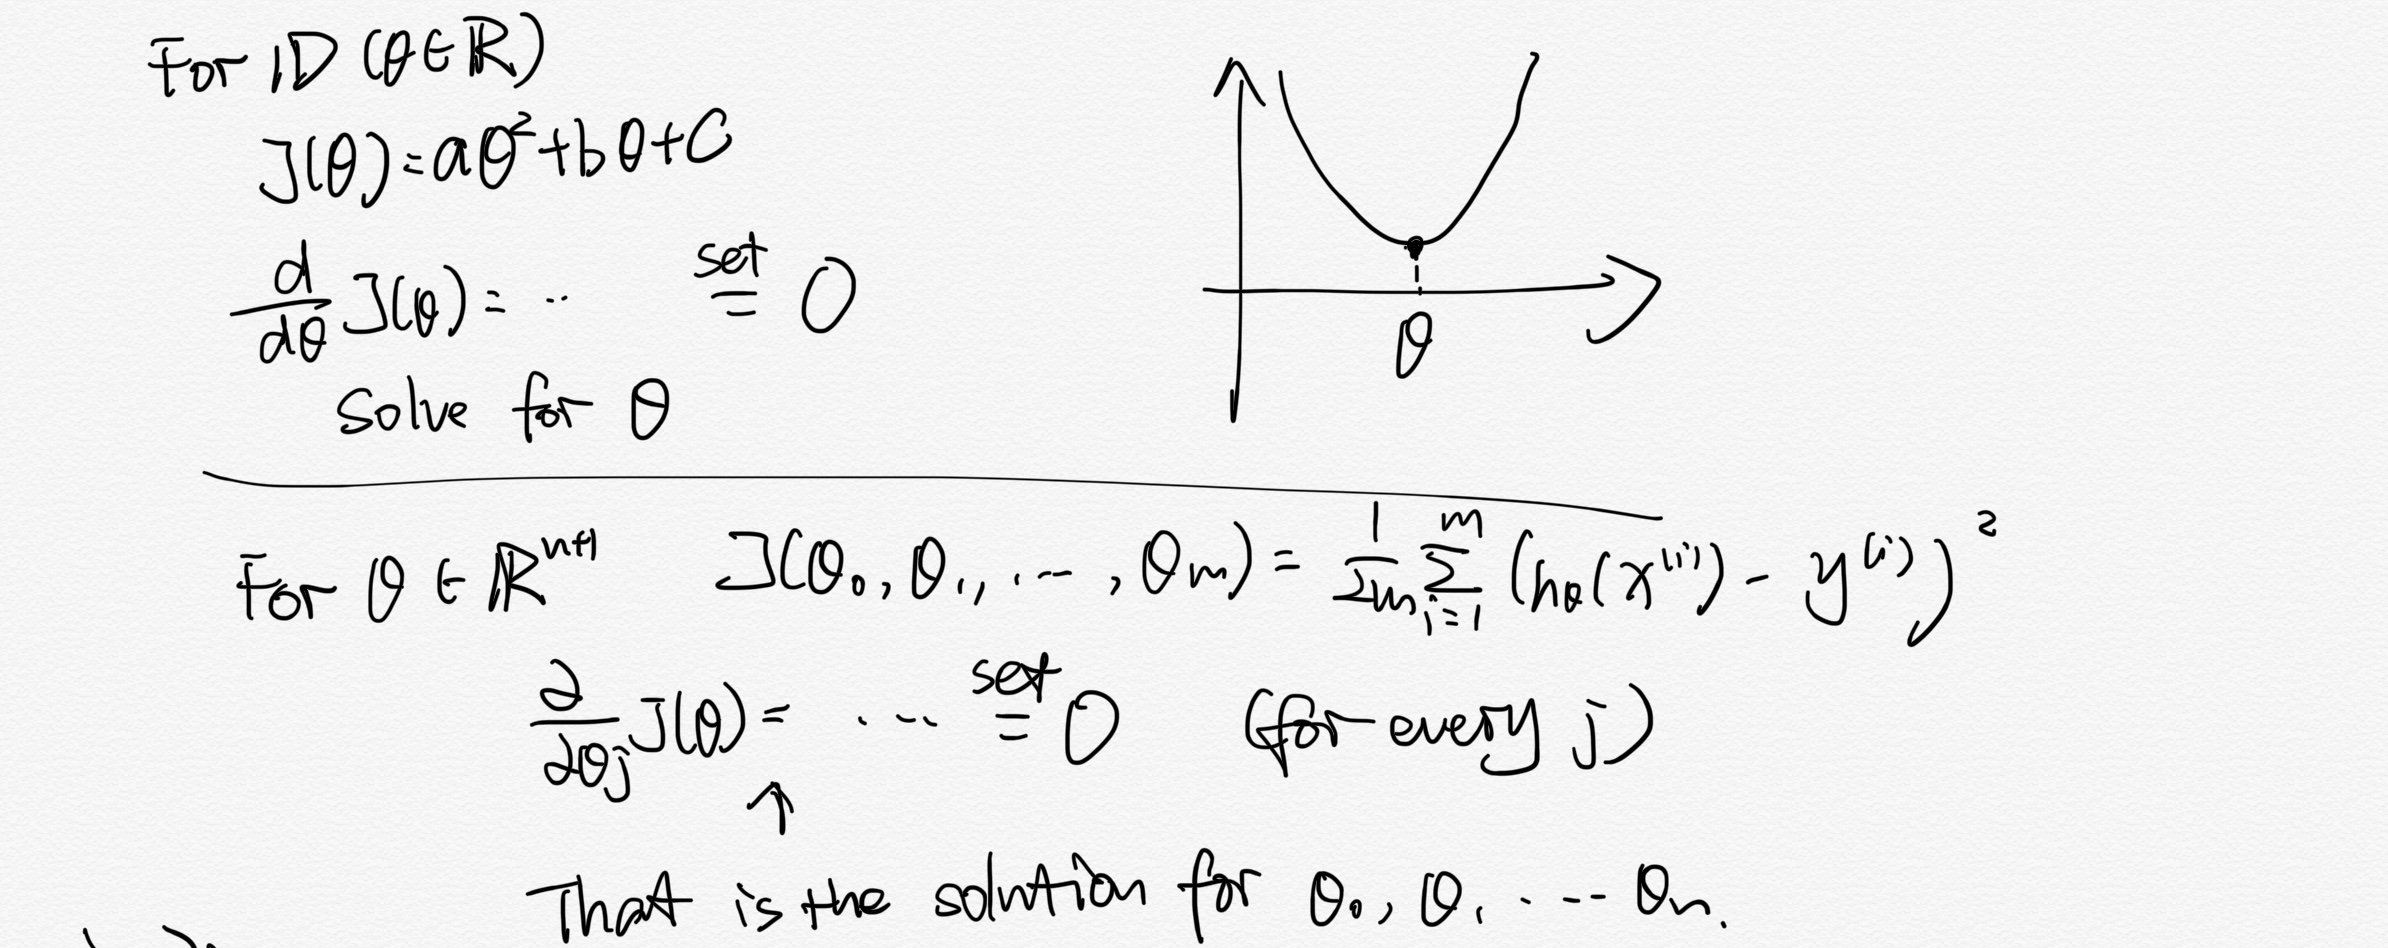 For 1D (θ∈ℝ)
J(θ)=aθ²+bθ+C
d/dθ J(θ) = ·· set = 0
Solve for θ
θ
For θ ∈ ℝⁿ⁺¹ J(θ₀, θ₁, ..., θₘ) = 1/2m ∑ᵢ₌₁ᵐ (hθ(x⁽ⁱ⁾) - y⁽ⁱ⁾)²
∂/∂θj J(θ) = ... set = 0 (for every j)
↑
That is the solution for θ₀, θ₁ ... θₙ.